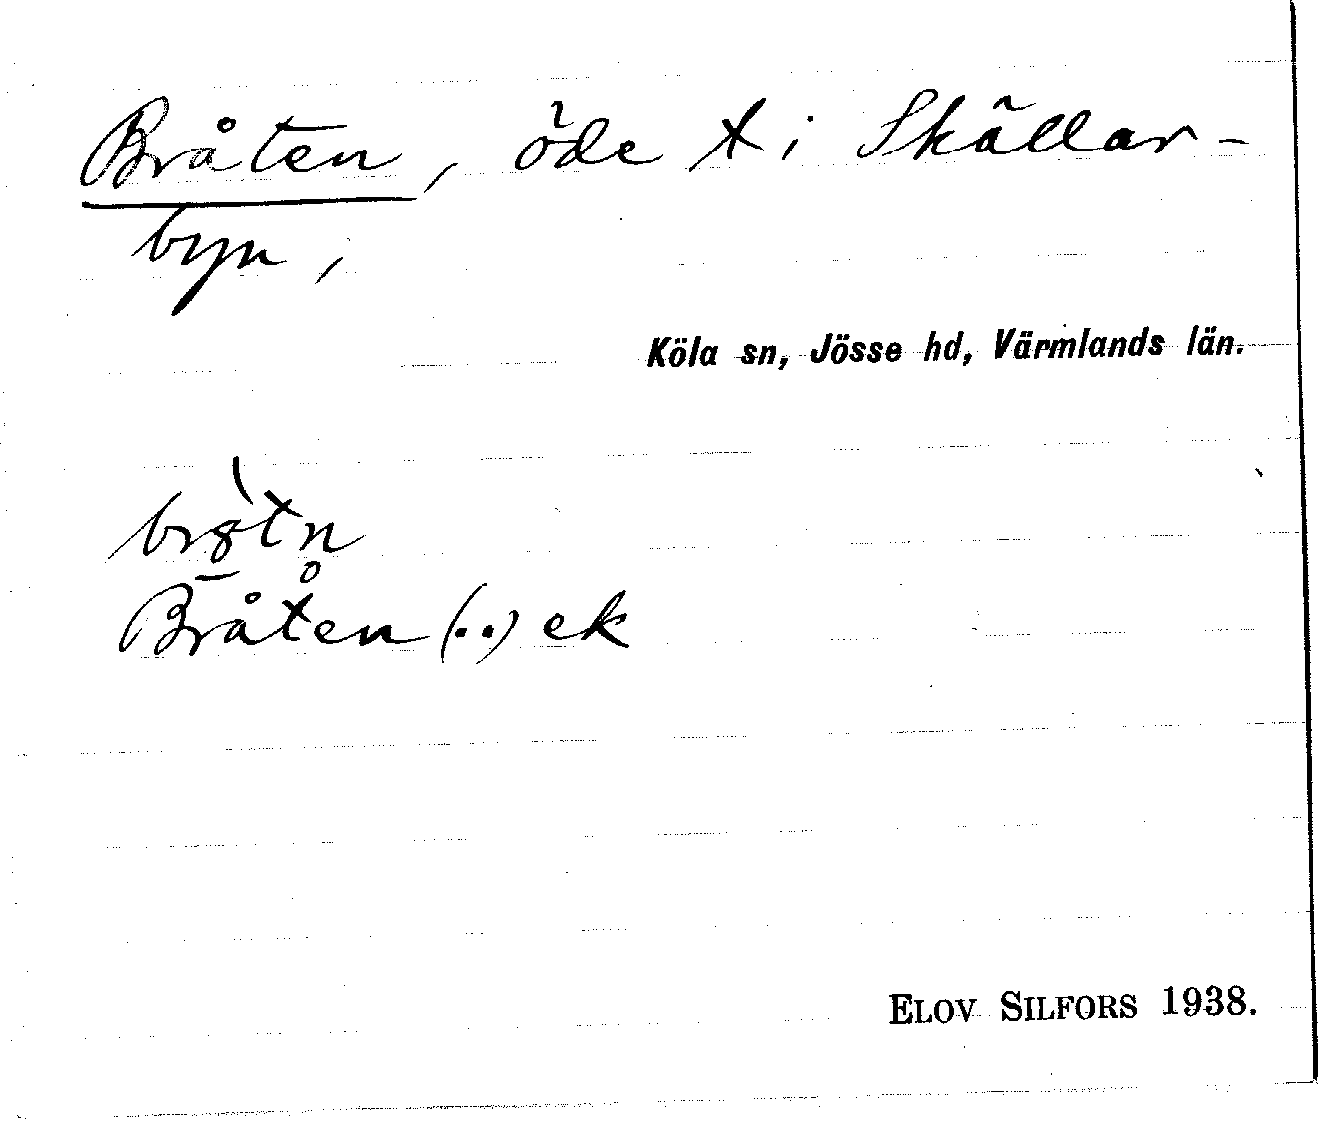 Bråten, öde t i Skällar-
byn,
Köla sn, Jösse hd, Värmlands län.
Bråten (..) ek
ELOV SILFORS 1938.